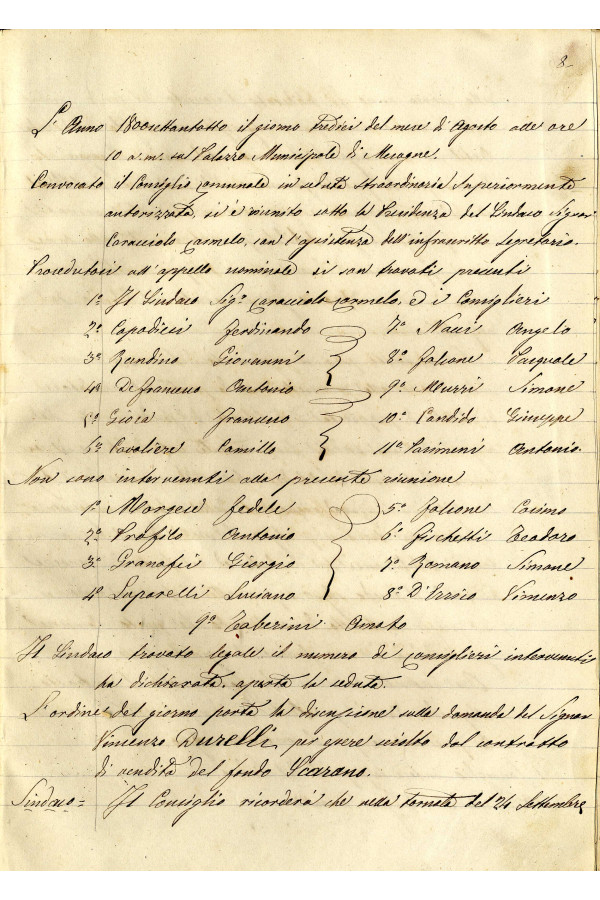 8
L'Anno 1800settantotto il giorno tredici del mese di Agosto alle ore
10 a.m. sul Palazzo Municipale di Mesagne.
Convocato il Consiglio comunale in seduta straordinaria superiormente
autorizzata, si è riunito sotto la Presidenza del Sindaco Signor
Caracciolo Carmelo, con l'assistenza dell'infrascritto Segretario.
Procedutosi all'appello nominale si son trovati presenti
1º Il Sindaco Sigr Caracciolo Carmelo, e i Consiglieri
2º Capodieci Ferdinando 7º Nacci Angelo
3º Zandino Giovanni 8º Falcone Pasquale
4º De Franceso Antonio 9º Murri Simone
5º Gioia Francesco 10º Candido Giuseppe
6º Cavaliere Camillo 11º Sasimeni Antonio.
Non sono intervenuti alla presente riunione
1º Morgese Fedele 5º Falcone Cosimo
2º Profilo Antonio 6º Fischetti Teodoro
3º Granafei Giorgio 7º Romano Simone
4º Saparelli Luciano 8º D'Errico Vincenzo
9º Taberini Amato
Il Sindaco trovato legale il numero di consiglieri intervenuti
ha dichiarata aperta la seduta.
L'ordine del giorno porta la discussione sulla domanda del Signor
Vincenzo Durelli per essere sciolto dal contratto
di vendita del fondo Scazano.
Sindaco = Il Consiglio ricorderà che nella tornata del 24 Settembre